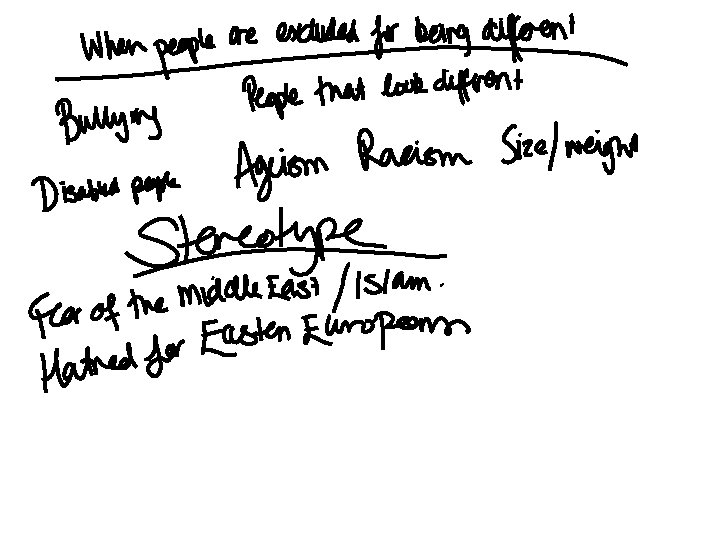 When people are excluded for being different
Bullying People that look different
Disabled people Ageism Racism Size/weight
Stereotype
Fear of the Middle East / Islam.
Hatred for Easten Europeans